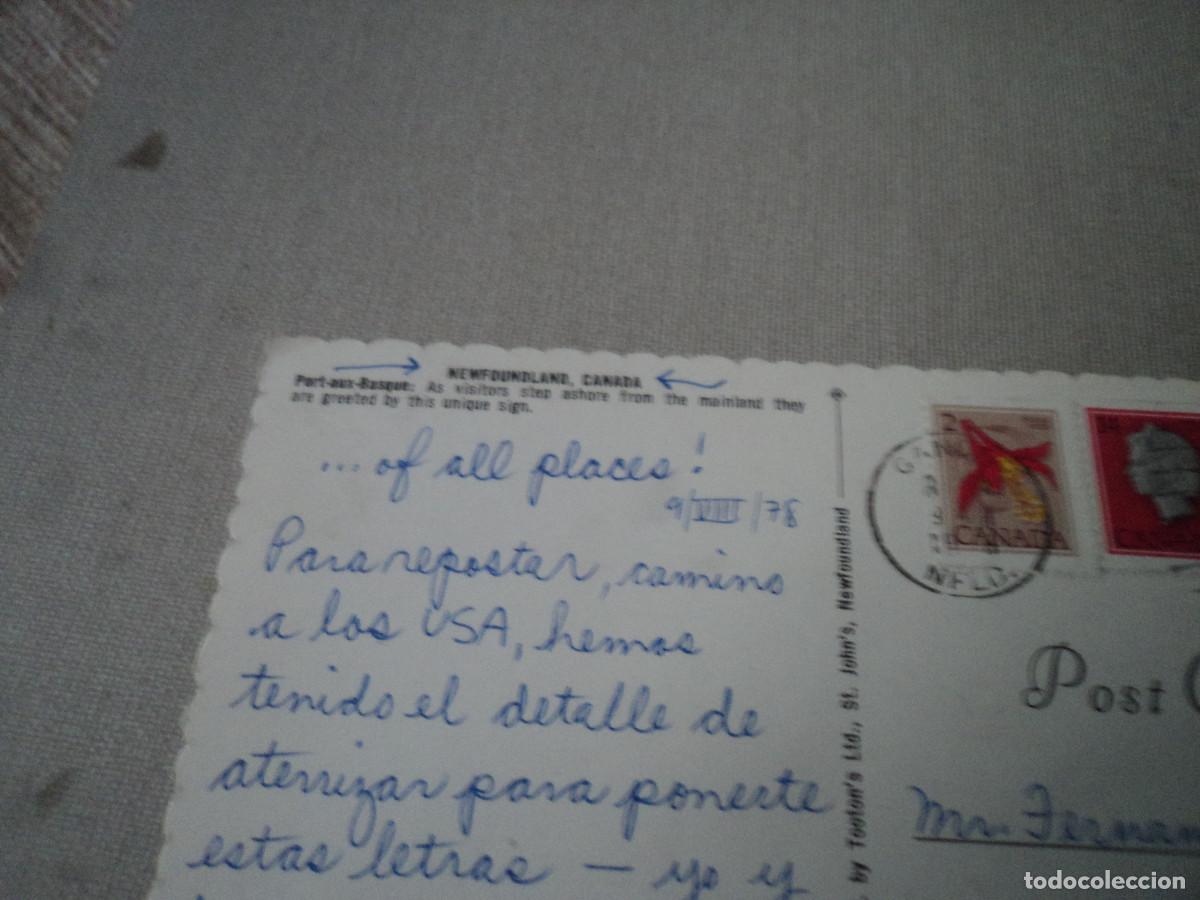 NEWFOUNDLAND, CANADA
Port-aux-Basque: As visitors step ashore from the mainland they
are greeted by this unique sign.
... of all places!
9/VIII/78
Para repostar, camino
a los USA, hemos
tenido el detalle de
aterrizar para ponerte
estas letras — yo y
by Tooton's Ltd., St. John's, Newfoundland
2
CANADA
14
NFLD.
Post
Mr. Fernan
todocoleccion